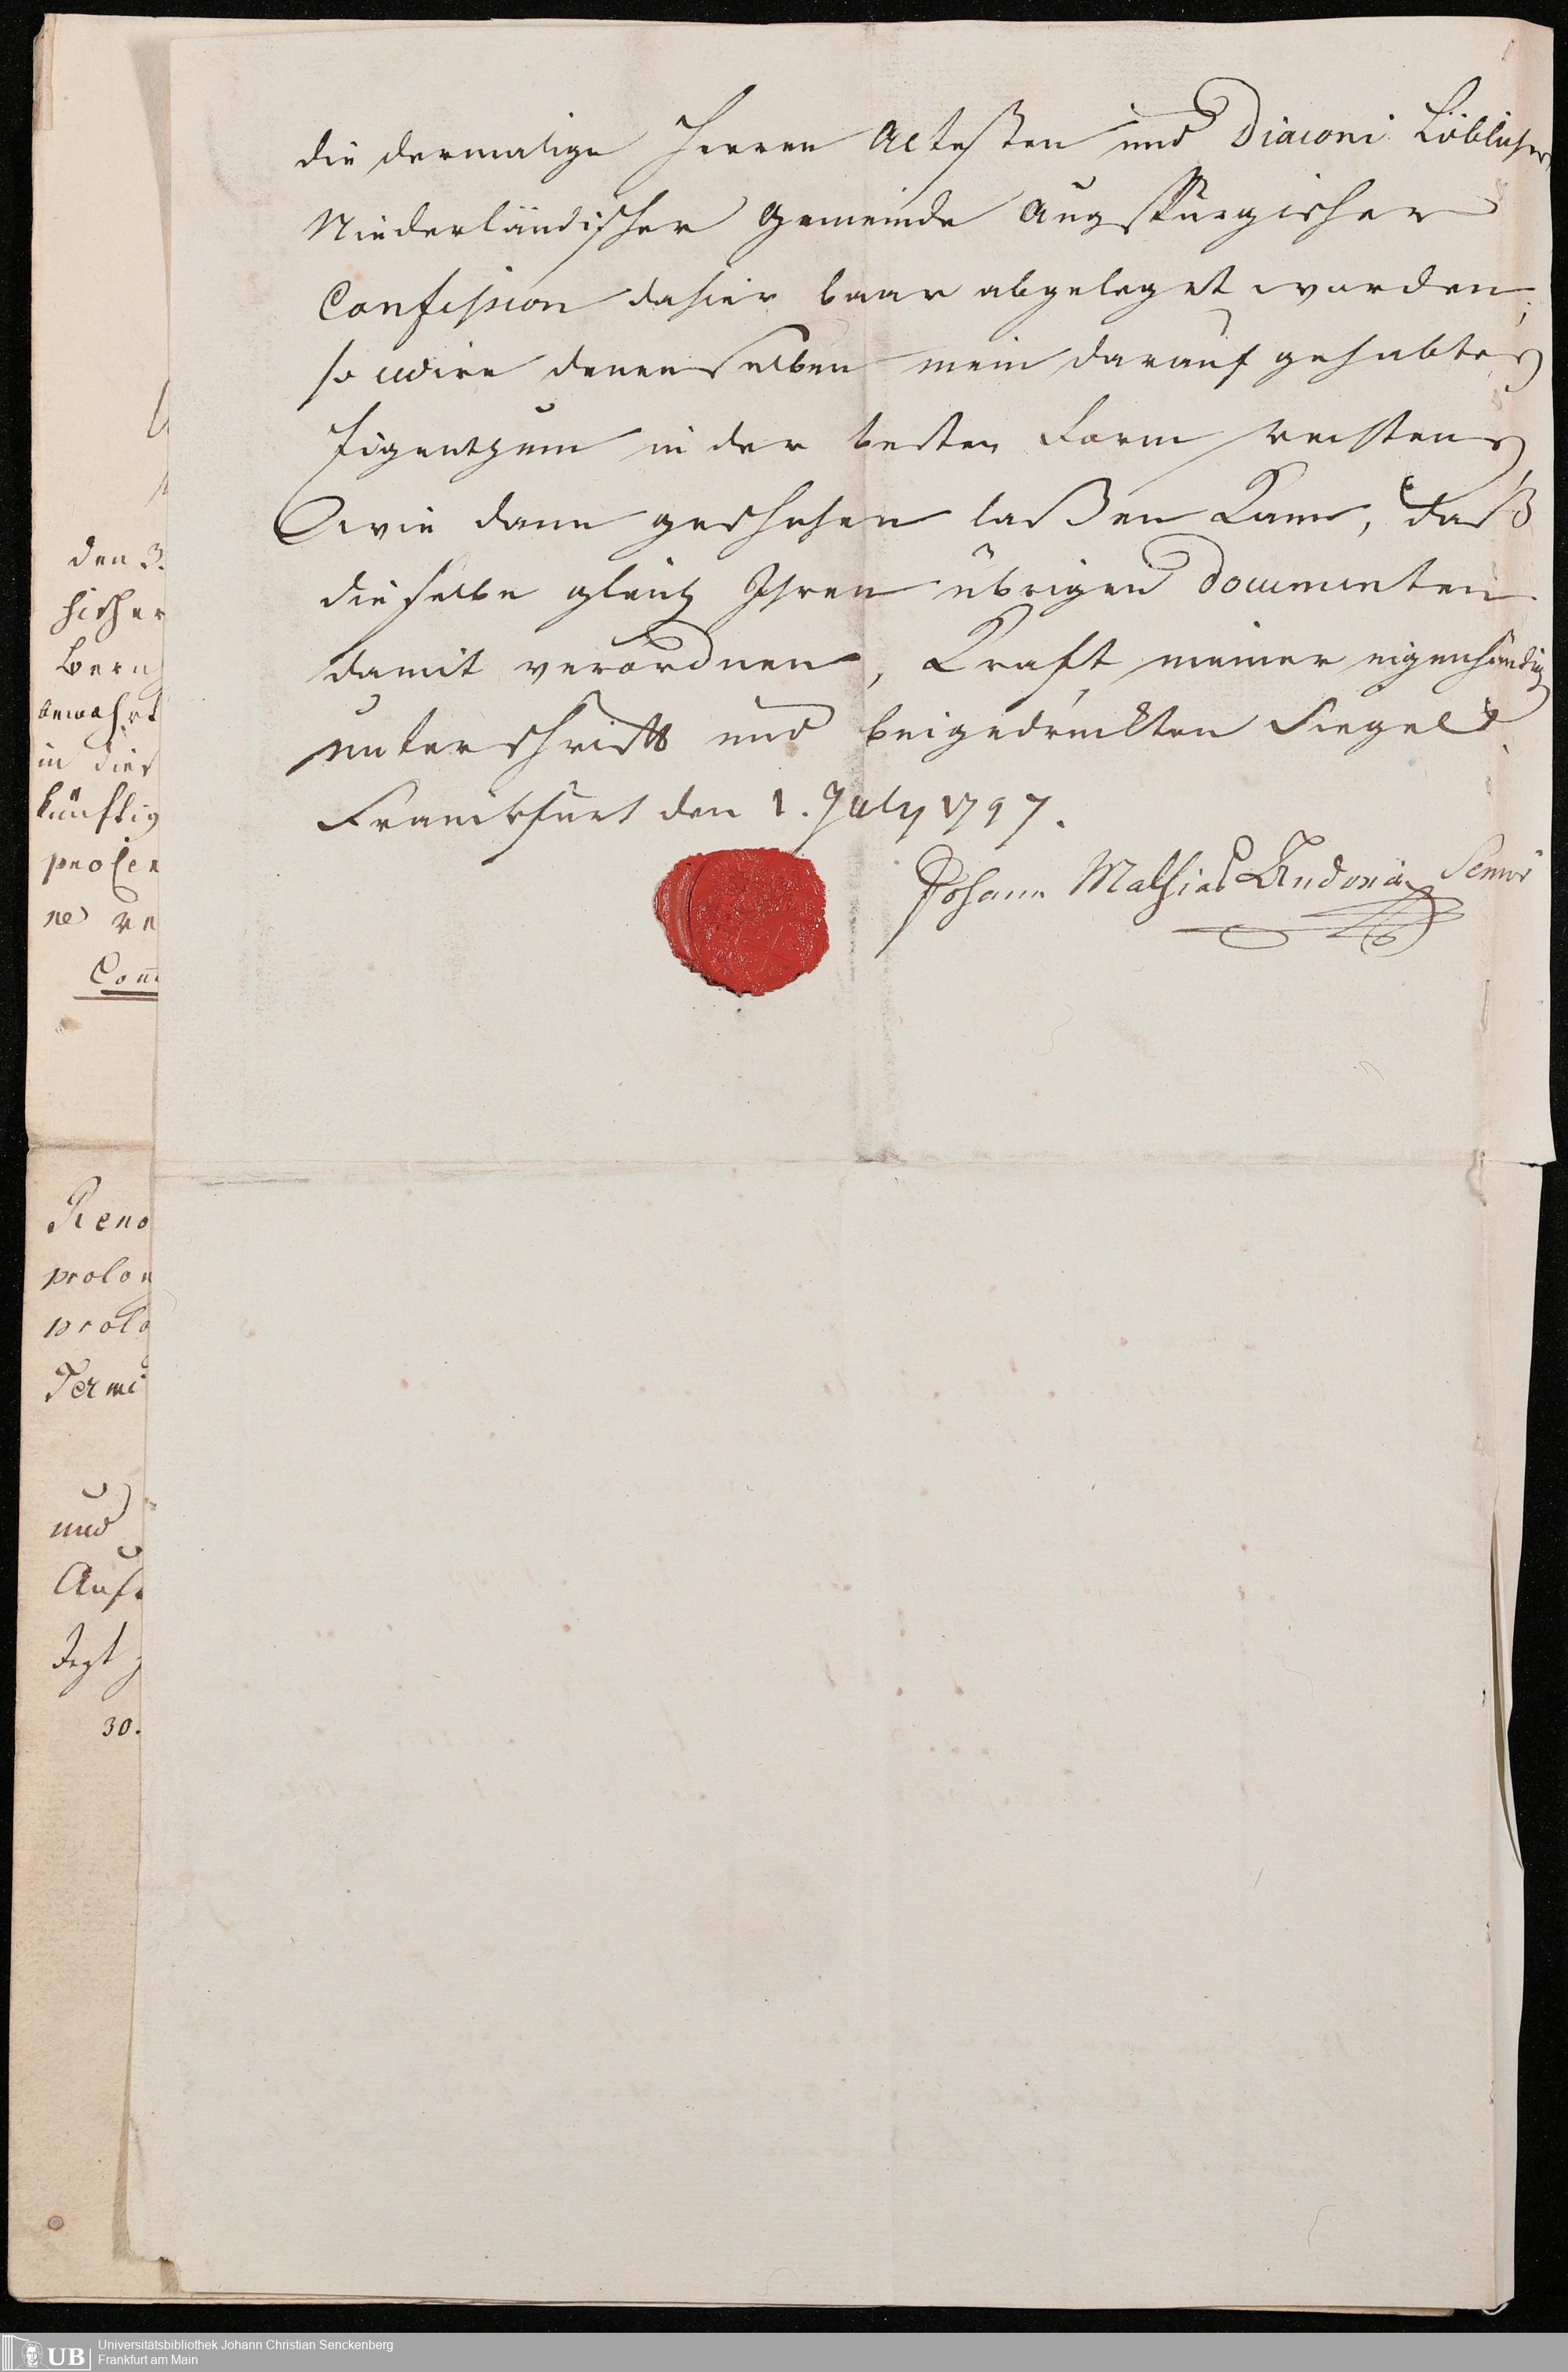 die dermalige Herren Aeltesten und Diaconi Löblicher
Niederländischer Gemeinde Augspurgischer
Confession dahier baar abgeleget worden,
so cedire denenselben mein darauf gehabtes
Eigenthum in der besten Form rechtens,
wie dann geschehen laßen kann, daß
dieselbe gleich Ihren übrigen Documenten
damit verordnen, Kraft meiner eigenhändig
unterschrift und beigedruckten Siegels.
Franckfurt den 1. July 1797.
Johann Mathias Andreä Senior
den 3.
in dies
künftig
Reno
prolon
prolo
Termi
und
Auf
Jezt
30.
UB
Universitätsbibliothek Johann Christian Senckenberg
Frankfurt am Main